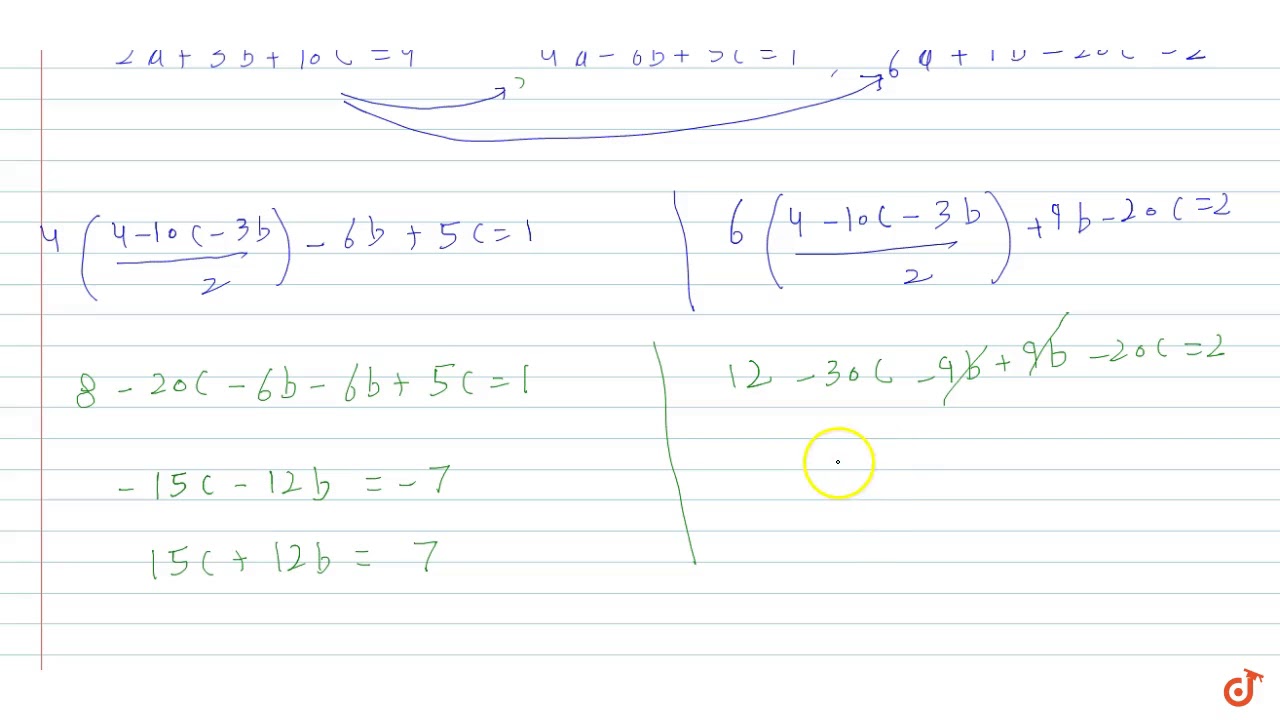 2a + 3b + 10c = 4 4a - 6b + 5c = 1 , 6a + 9b - 20c = 2
4 ( 4 - 10c - 3b / 2 ) - 6b + 5c = 1
8 - 20c - 6b - 6b + 5c = 1
- 15c - 12b = - 7
15c + 12b = 7
6 ( 4 - 10c - 3b / 2 ) + 9b - 20c = 2
12 - 30c - 9b + 9b - 20c = 2